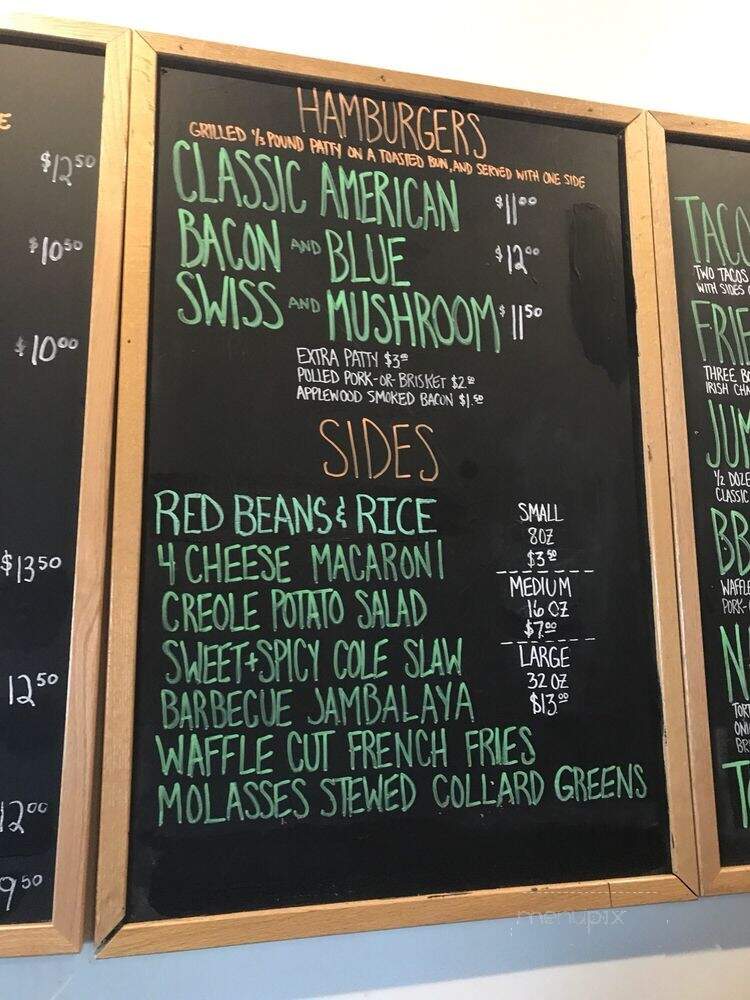 E
$12.50
$10.50
$10.00
$13.50
12.50
12.00
9.50
HAMBURGERS
GRILLED 1/3 POUND PATTY ON A TOASTED BUN, AND SERVED WITH ONE SIDE
CLASSIC AMERICAN $11.00
BACON AND BLUE $12.00
SWISS AND MUSHROOM $11.50
EXTRA PATTY $3.00
PULLED PORK-OR-BRISKET $2.00
APPLEWOOD SMOKED BACON $1.50
SIDES
RED BEANS & RICE
4 CHEESE MACARONI
CREOLE POTATO SALAD
SWEET+SPICY COLE SLAW
BARBECUE JAMBALAYA
WAFFLE CUT FRENCH FRIES
MOLASSES STEWED COLLARD GREENS
SMALL
8OZ
$3.50
MEDIUM
16 OZ
$7.00
LARGE
32 OZ
$13.00
TACO
TWO TACOS
WITH SIDES
FRIE
THREE
IRISH CHA
JUM
1/2 DOZE
CLASSIC
BB
WAFFLE
PORK-
N
TORT
ONI
BR
T
menupix